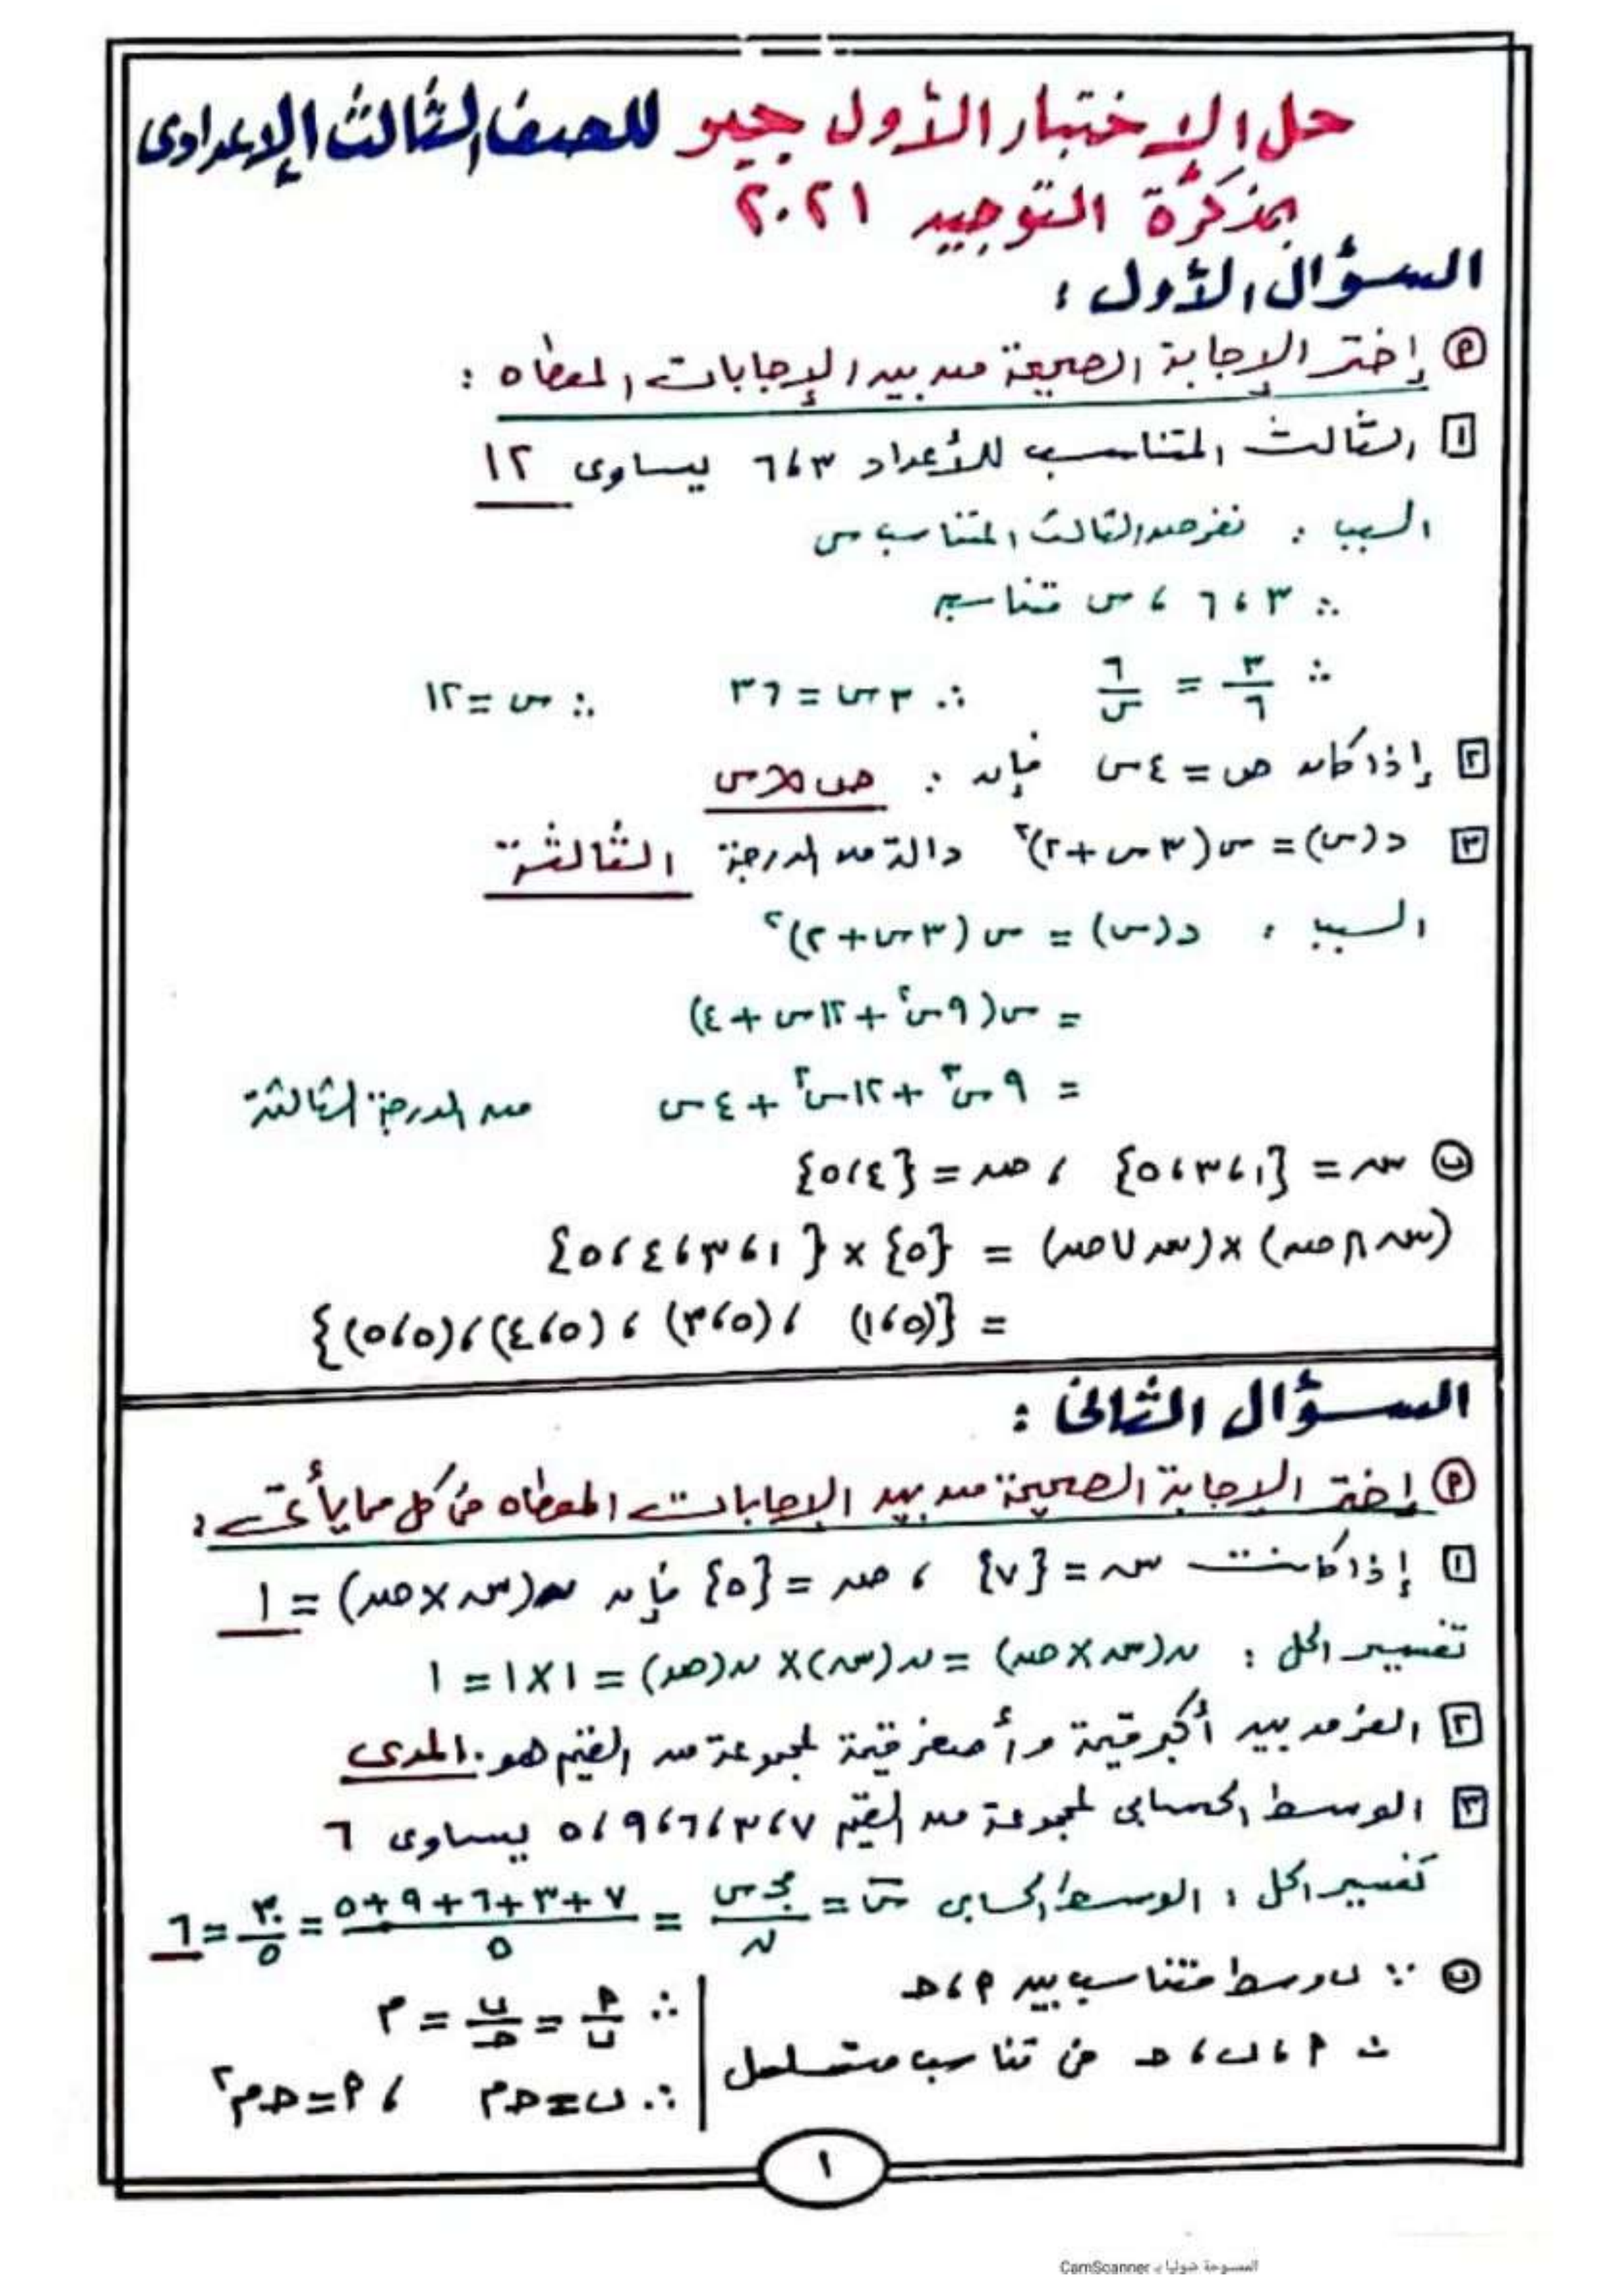 حل الإختبار الأول جبر للصف الثالث الإعدادى
بمذكرة التوجيه ٢٠٢١
السؤال الأول :
(أ) إختر الإجابة الصحيحة من بين الإجابات المعطاه :
[١] الثالث المتناسب للأعداد ٣، ٦ يساوى ١٢
السبب : نفرض الثالث المتناسب س
∴ ٣، ٦ ، س متناسبة
∴ ٣/٦ = ٦/س ∴ ٣س = ٣٦ ∴ س = ١٢
[٢] إذا كان ص = ٤س فإن : ص ∝ س
[٣] د(س) = س(٣س + ٢)² دالة من الدرجة الثالثة
السبب : د(س) = س(٣س + ٢)²
= س(٩س² + ١٢س + ٤)
= ٩س³ + ١٢س² + ٤س من الدرجة الثالثة
(ب) سـ = {١، ٣، ٥} ، صـ = {٤، ٥}
(سـ ∩ صـ) × (سـ ∪ صـ) = {٥} × {١، ٣، ٤، ٥}
= {(٥، ١) ، (٥، ٣) ، (٥، ٤) ، (٥، ٥)}
السؤال الثانى :
(أ) إختر الإجابة الصحيحة من بين الإجابات المعطاه فى كل مما يأتى :
[١] إذا كانت سـ = {٧} ، صـ = {٥} فإن ن(سـ × صـ) = ١
تفسير الحل : ن(سـ × صـ) = ن(سـ) × ن(صـ) = ١ × ١ = ١
[٢] الفرق بين أكبر قيمة وأصغر قيمة لمجموعة من القيم هو. المدى
[٣] الوسط الحسابى لمجموعة من القيم ٧، ٣، ٦، ٩، ٥ يساوى ٦
تفسير الحل : الوسط الحسابى س̄ = مجـ س/ن = ٧ + ٣ + ٦ + ٩ + ٥/٥ = ٣٠/٥ = ٦
(ب) ∵ ب وسط متناسب بين أ ، حـ
∴ أ ، ب ، حـ فى تناسب متسلسل
∴ أ/ب = ب/حـ = م
∴ ب = حـ م ، أ = حـ م²
١
الممسوحة ضوئيا بـ CamScanner